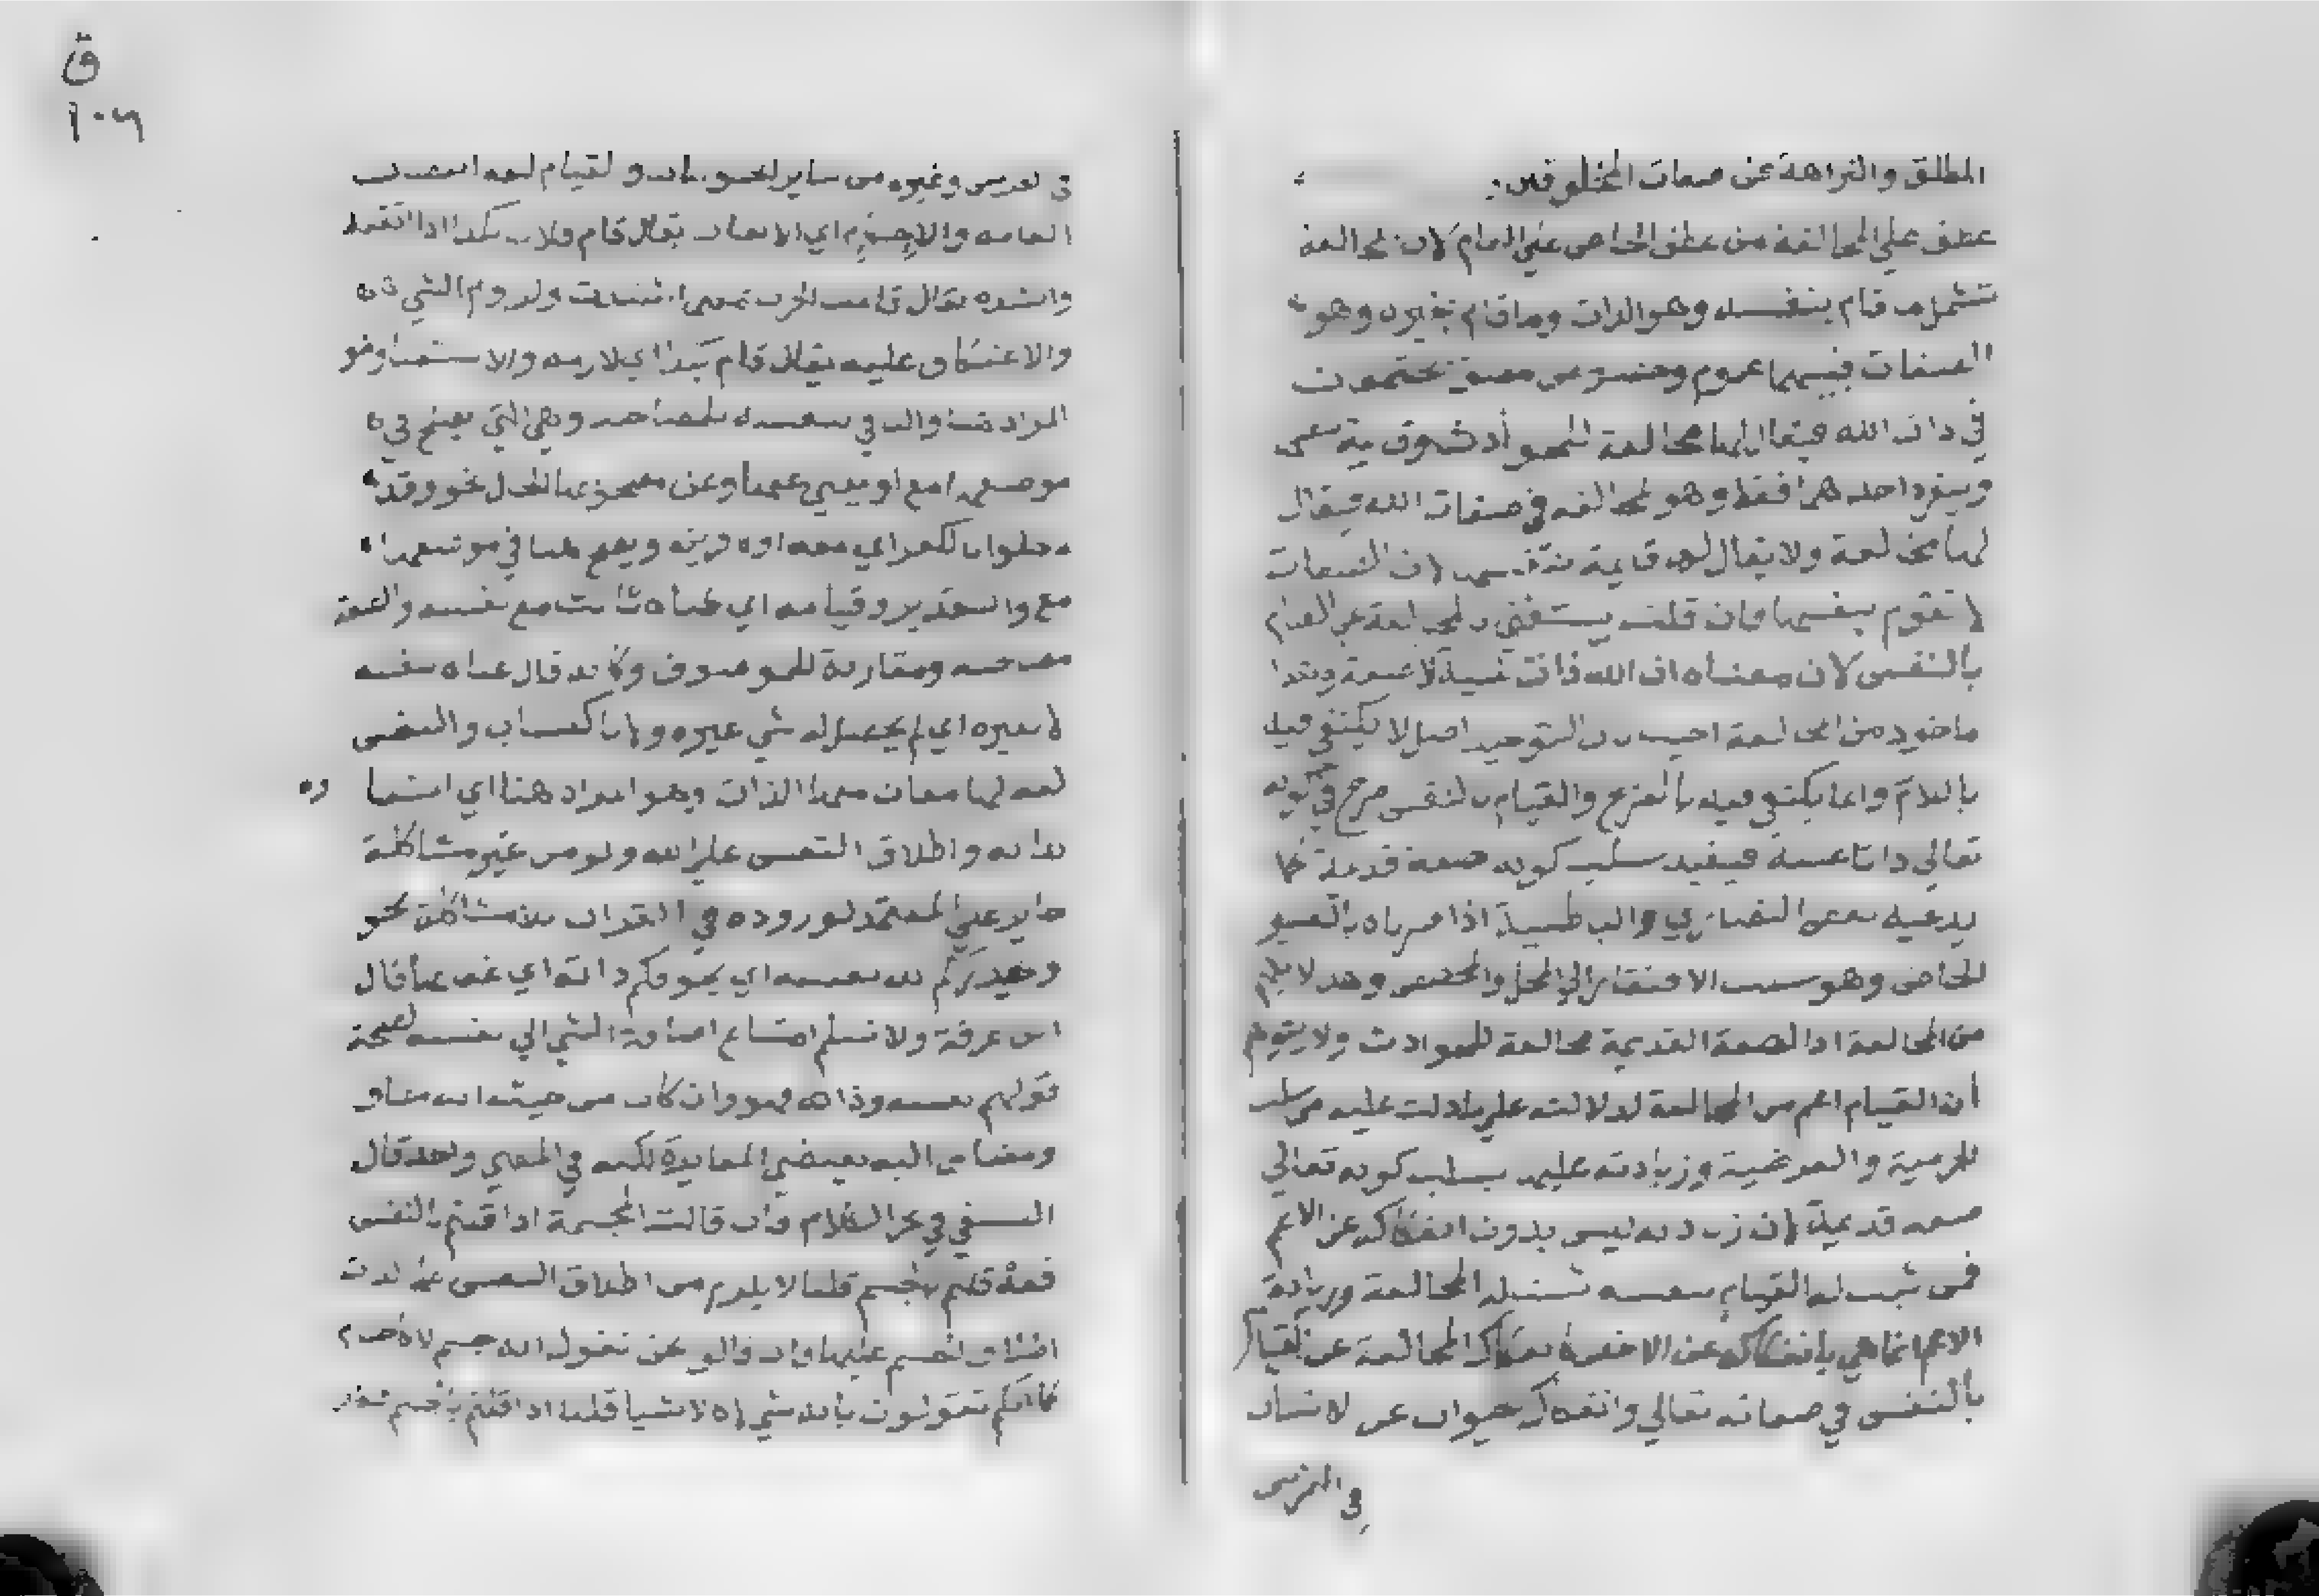 المطلق والنزاهة عن صفات المخلوقين
عطف علي المخالفة من عطف الخاص علي العام لان المخالفة
تشمل ما قام بنفسه وهو الذات وما قام بغيره وهو
الصفات فبينهما عموم وخصوص مطلق يجتمعان
في ذات الله فيقال لها مخالفة للحوادث وقايمة بنفسها
وينفرد احدهما فقط وهو المخالفة في صفات الله فيقال
لها مخالفة ولا يقال لها قايمة بنفسها لان الصفات
لا تقوم بنفسها فان قلت يستغني بالمخالفة عن القيام
بالنفس لان معناه ان الله ذات لا صفة وهذا
ماخوذ من المخالفة اجيب بان التوحيد اصل لا يكتفي فيه
باللازم وانما يكتفي فيه بالفرع والقيام بالنفس صرح في كونه
تعالي ذاتا فيفيد سلب كونه صفة قديمة كما
يدعيه بعض النصاري والباطنية اذا فسرناه بالتفسير
الخاص وهو سلب الافتقار الي المحل والمخصص وهذا لا يلزم
من المخالفة اذ الصفة القديمة مخالفة للحوادث ولا يتوهم
ان القيام اعم من المخالفة لدلالته علي ما دلت عليه من سلب
الجرمية والعرضية وزيادته عليها بسلب كونه تعالي
صفة قديمة لان زيادته ليس بدون انفكاكه عن الاعم
فمن ثبت له القيام بنفسه ثبتت له المخالفة وزيادة
الاعم انما هي بانفكاكه عن الاخص كانفكاك المخالفة عن القيام
بالنفس في صفاته تعالي وانفكاك حيوان عن الانسان
في الفرس
ق
١٠٦
في الفرس وغيره من ساير الحيوانات والقيام لغة انتصاب
القامة والاعتزام اي الاتصاف يقال قام فلان بكذا اذا اتصف
والشدة يقال قامت الحرب بمعني اشتدت ولزوم الشي
والاعتكاف عليه يقال قام بكذا اي لازمه والاستغنا وهو
المراد هنا والبا في بنفسه للمصاحبة وهي التي يصلح في
موضعها مع او يغني عنها وعن مصحوبها الحال نحو وقد
دخلوا بالكفر اي معه او كافرين ويصح هنا في موضعها
مع والتقدير وقيامه اي غناه ثابت مع نفسه والصفة
مصاحبة ومقارنة للموصوف وكانه قال غناه بنفسه
لا بغيره اي لم يحصل له شي غيره ولا باكتساب والنفس
لغة لها معان منها الذات وهو المراد هنا اي استغنا وه
بذاته واطلاق النفس علي الله ولو من غير مشاكلة
جايز علي المعتمد لوروده في القران بلا مشاكلة نحو
ويحذركم الله نفسه اي يخوفكم ذاته اي عقابها قال
ابن عرفة ولا نسلم امتناع اضافة الشي الي نفسه لصحة
قولهم نفسه وذاته فهو وان كان من حيث انه مضاف
ومضاف اليه يقتضي المغايرة لكنه في المعني واحد قال
النسفي في بحر الكلام فان قالت المجسمة اذا قلتم بالنفس
فقد قلتم بالجسم قلنا لا يلزم من اطلاق النفس علي الذات
اطلاق الجسم عليها وان قالوا نحن نقول الله جسم لا كالاجسام
كما انكم تقولون بانه شي لا كالاشيا قلنا اذا قلتم بالجسم فقد